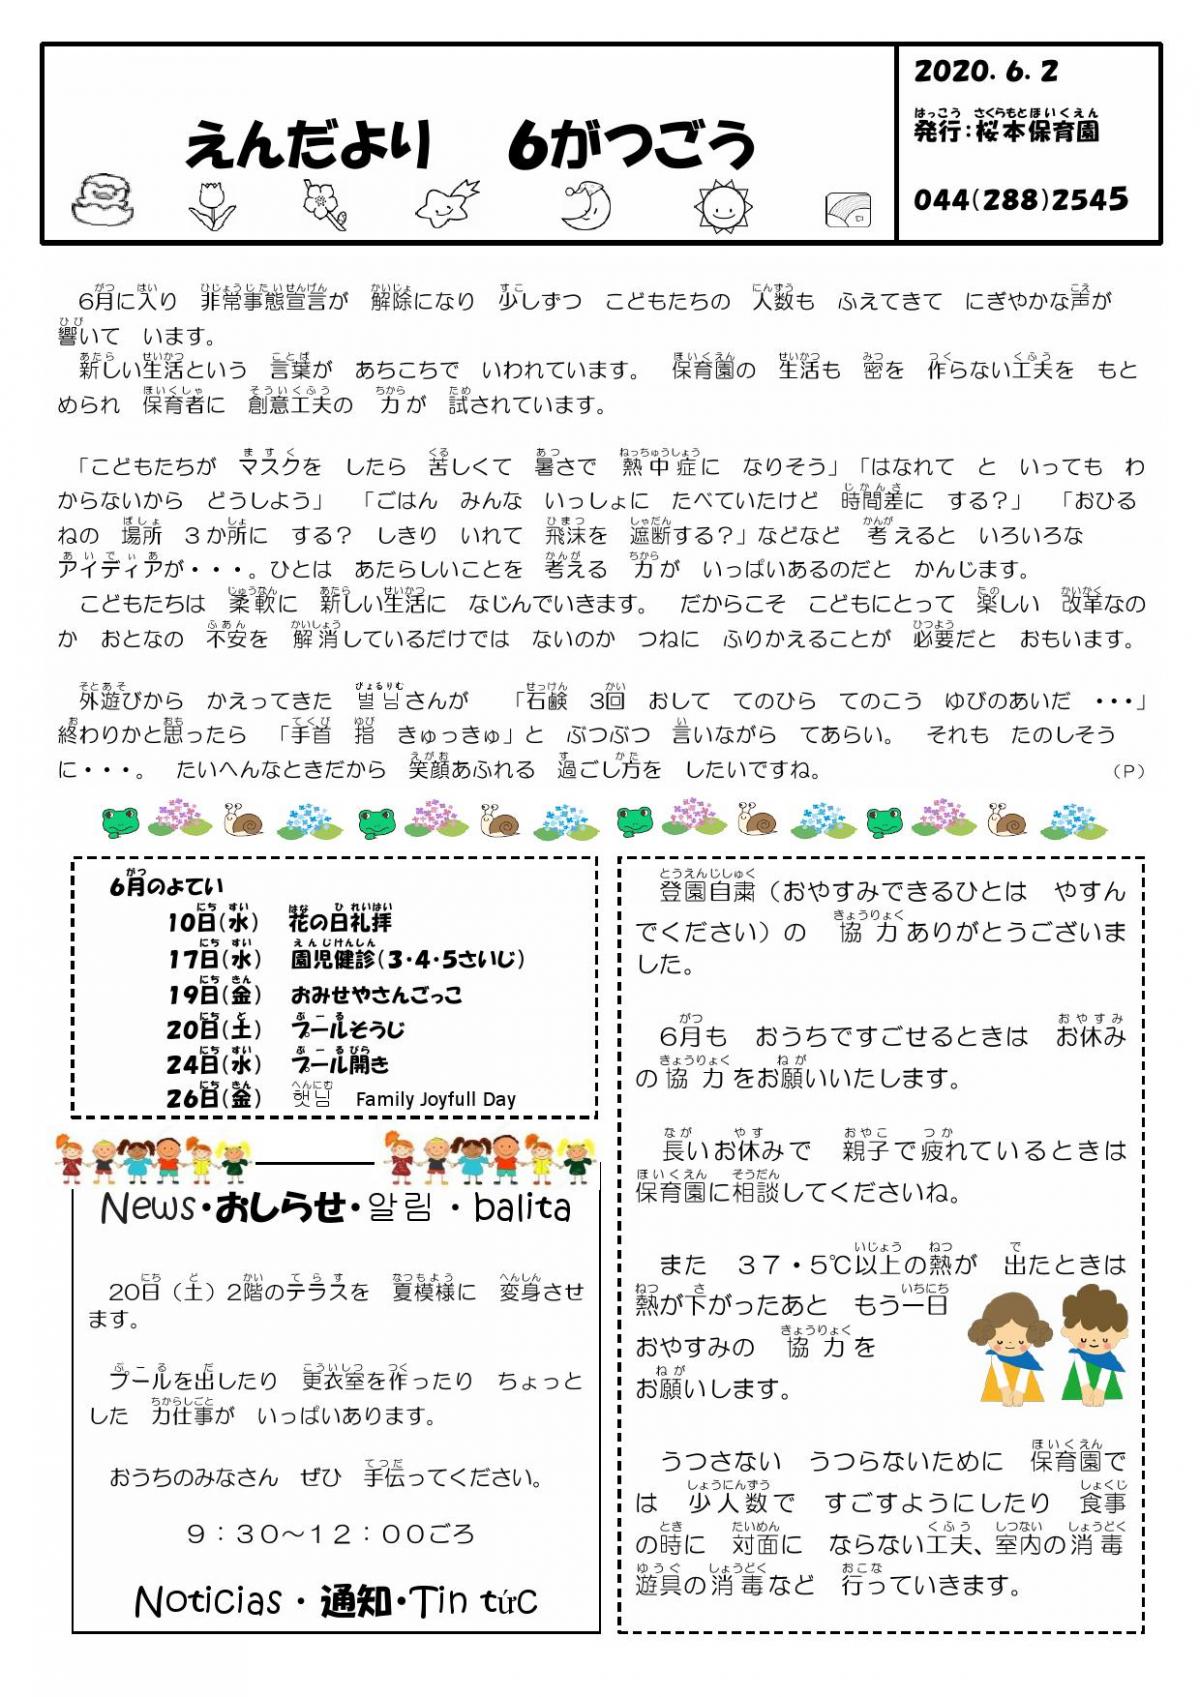 えんだより　6がつごう
2020. 6. 2
発行：桜本保育園
044(288)2545
6月に入り　非常事態宣言が　解除になり　少しずつ　こどもたちの　人数も　ふえてきて　にぎやかな声が
響いて　います。
新しい生活という　言葉が　あちこちで　いわれています。　保育園の　生活も　密を　作らない工夫を　もと
められ　保育者に　創意工夫の　力が　試されています。
「こどもたちが　マスクを　したら　苦しくて　暑さで　熱中症に　なりそう」「はなれて　と　いっても　わ
からないから　どうしよう」　「ごはん　みんな　いっしょに　たべていたけど　時間差に　する？」　「おひる
ねの　場所　３か所に　する？　しきり　いれて　飛沫を　遮断する？」などなど　考えると　いろいろな
アイディアが・・・。ひとは　あたらしいことを　考える　力が　いっぱいあるのだと　かんじます。
こどもたちは　柔軟に　新しい生活に　なじんでいきます。　だからこそ　こどもにとって　楽しい　改革なの
か　おとなの　不安を　解消しているだけでは　ないのか　つねに　ふりかえることが　必要だと　おもいます。
外遊びから　かえってきた　별님さんが　「石鹸　3回　おして　てのひら　てのこう　ゆびのあいだ　・・・」
終わりかと思ったら　「手首　指　きゅっきゅ」と　ぶつぶつ　言いながら　てあらい。　それも　たのしそう
に・・・。　たいへんなときだから　笑顔あふれる　過ごし方を　したいですね。　（P）
6月のよてい
10日(水)　花の日礼拝
17日(水)　園児健診(3・4・5さいじ)
19日(金)　おみせやさんごっこ
20日(土)　プールそうじ
24日(水)　プール開き
26日(金)　햇님　Family Joyfull Day
News・おしらせ・알림・balita
20日（土）2階のテラスを　夏模様に　変身させ
ます。
プールを出したり　更衣室を作ったり　ちょっと
した　力仕事が　いっぱいあります。
おうちのみなさん　ぜひ　手伝ってください。
９：３０～１２：００ごろ
Noticias・通知・Tin tức
登園自粛（おやすみできるひとは　やすん
でください）の　協力ありがとうございま
した。
6月も　おうちですごせるときは　お休み
の協力をお願いいたします。
長いお休みで　親子で疲れているときは
保育園に相談してくださいね。
また　３７・５℃以上の熱が　出たときは
熱が下がったあと　もう一日
おやすみの　協力を
お願いします。
うつさない　うつらないために　保育園で
は　少人数で　すごすようにしたり　食事
の時に　対面に　ならない工夫、室内の消毒
遊具の消毒など　行っていきます。